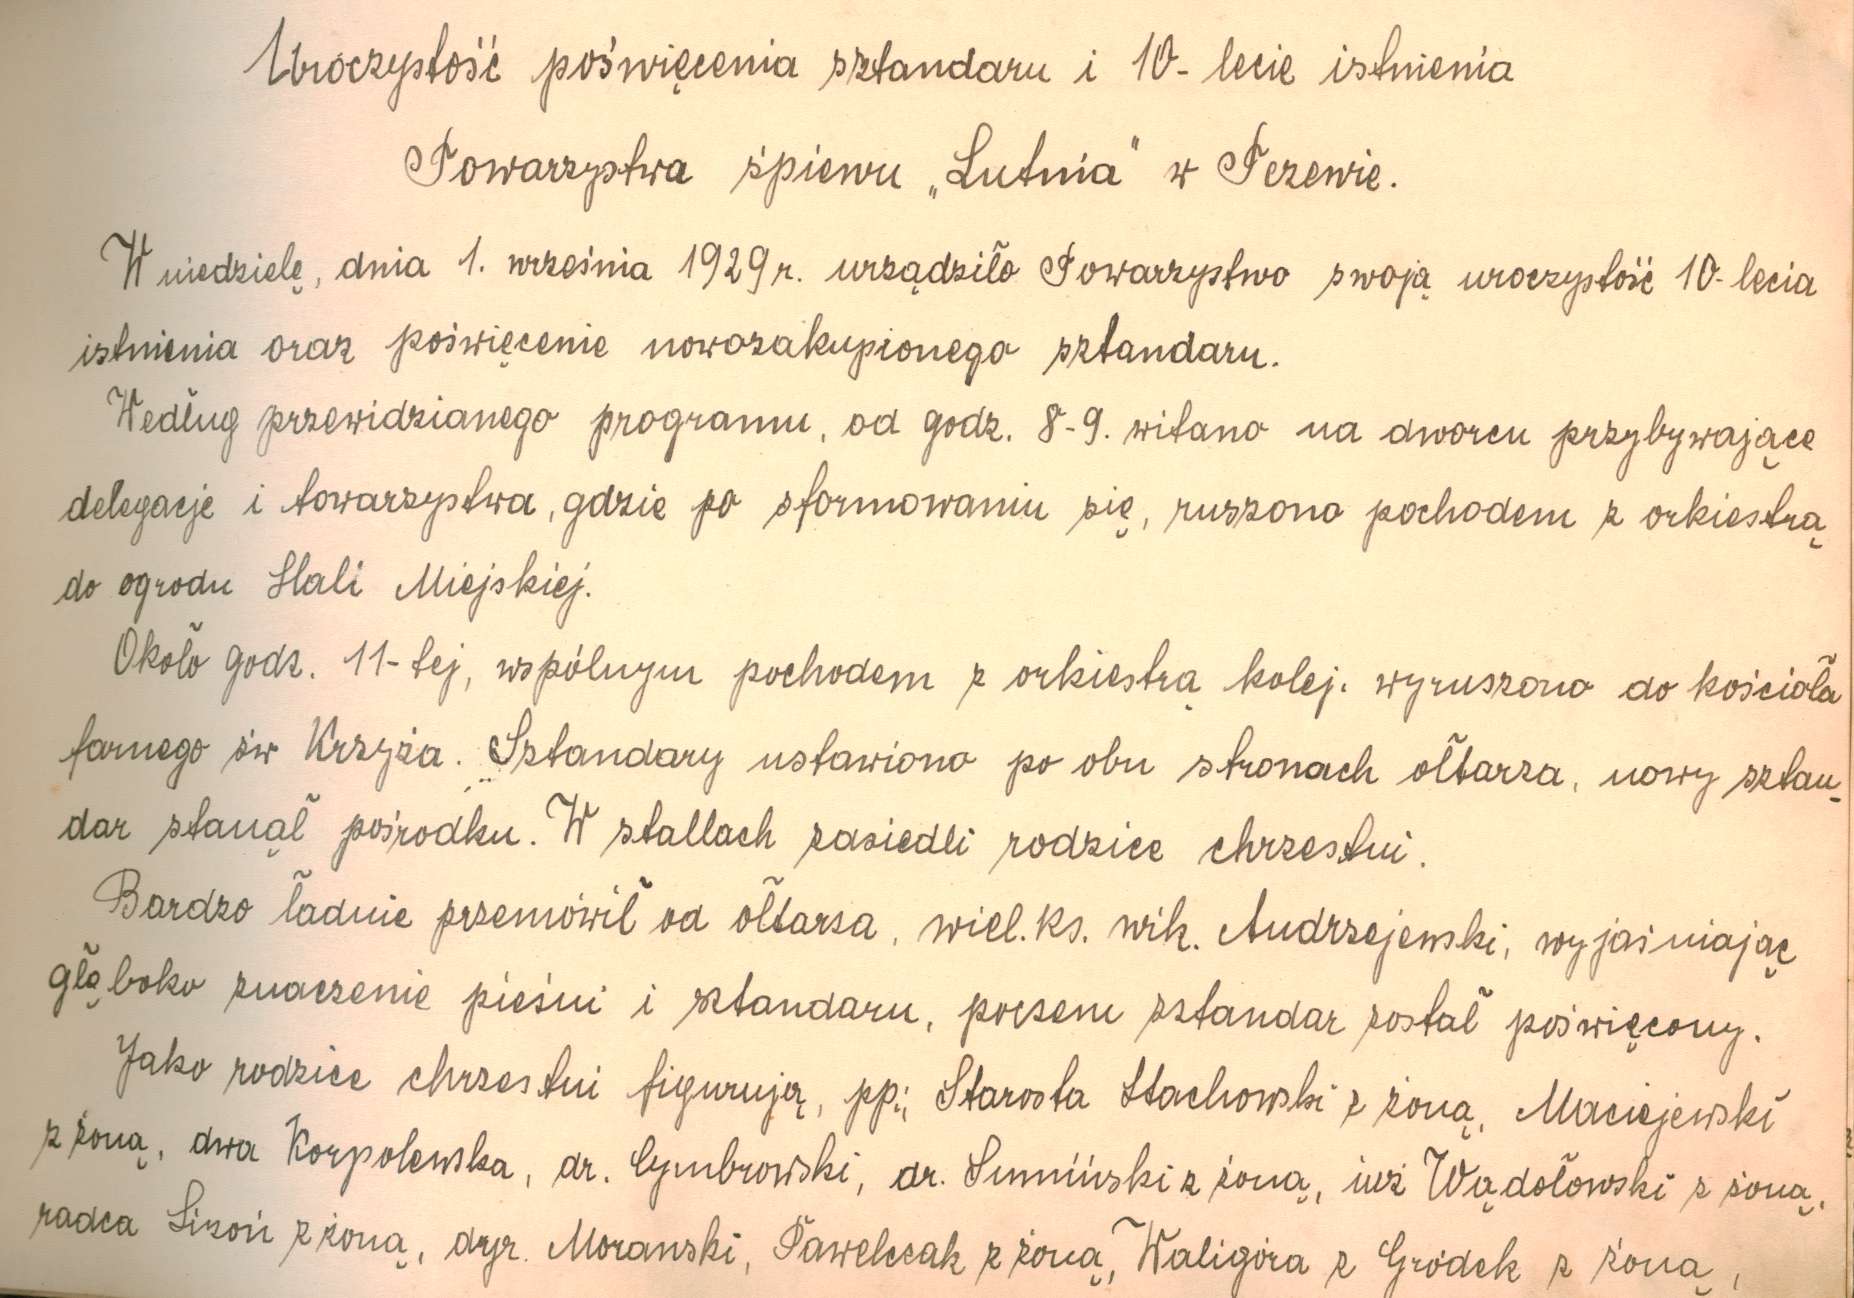 Uroczystość poświęcenia sztandaru i 10-lecie istnienia
Towarzystwa śpiewu „Lutnia" w Tczewie.
W niedzielę, dnia 1. września 1929 r. urządziło Towarzystwo swoją uroczystość 10-lecia
istnienia oraz poświęcenie nowozakupionego sztandaru.
Według przewidzianego programu, od godz. 8-9. witano na dworcu przybywające
delegacje i towarzystwa, gdzie po sformowaniu się, ruszono pochodem z orkiestrą
do ogrodu Hali Miejskiej.
Około godz. 11-tej, wspólnym pochodem z orkiestrą kolej. wyruszono do kościoła
farnego św Krzyża. Sztandary ustawiono po obu stronach ołtarza, nowy sztan-
dar stanął pośrodku. W stallach zasiedli rodzice chrzestni.
Bardzo ładnie przemówił od ołtarza, wiel. ks. wik. Andrzejewski, wyjaśniając
głęboko znaczenie pieśni i sztandaru, poczem sztandar został poświęcony.
Jako rodzice chrzestni figurują, pp.: Starosta Stachowski z żoną, Maciejewski
z żoną, dwa Korpolewska, dr. Cymbrowski, dr. Sumiński z żoną, inż Wądołowski z żoną,
radca Lizoń z żoną, dyr. Moranski, Pawelczak z żoną, Waligóra z Gródek z żoną,